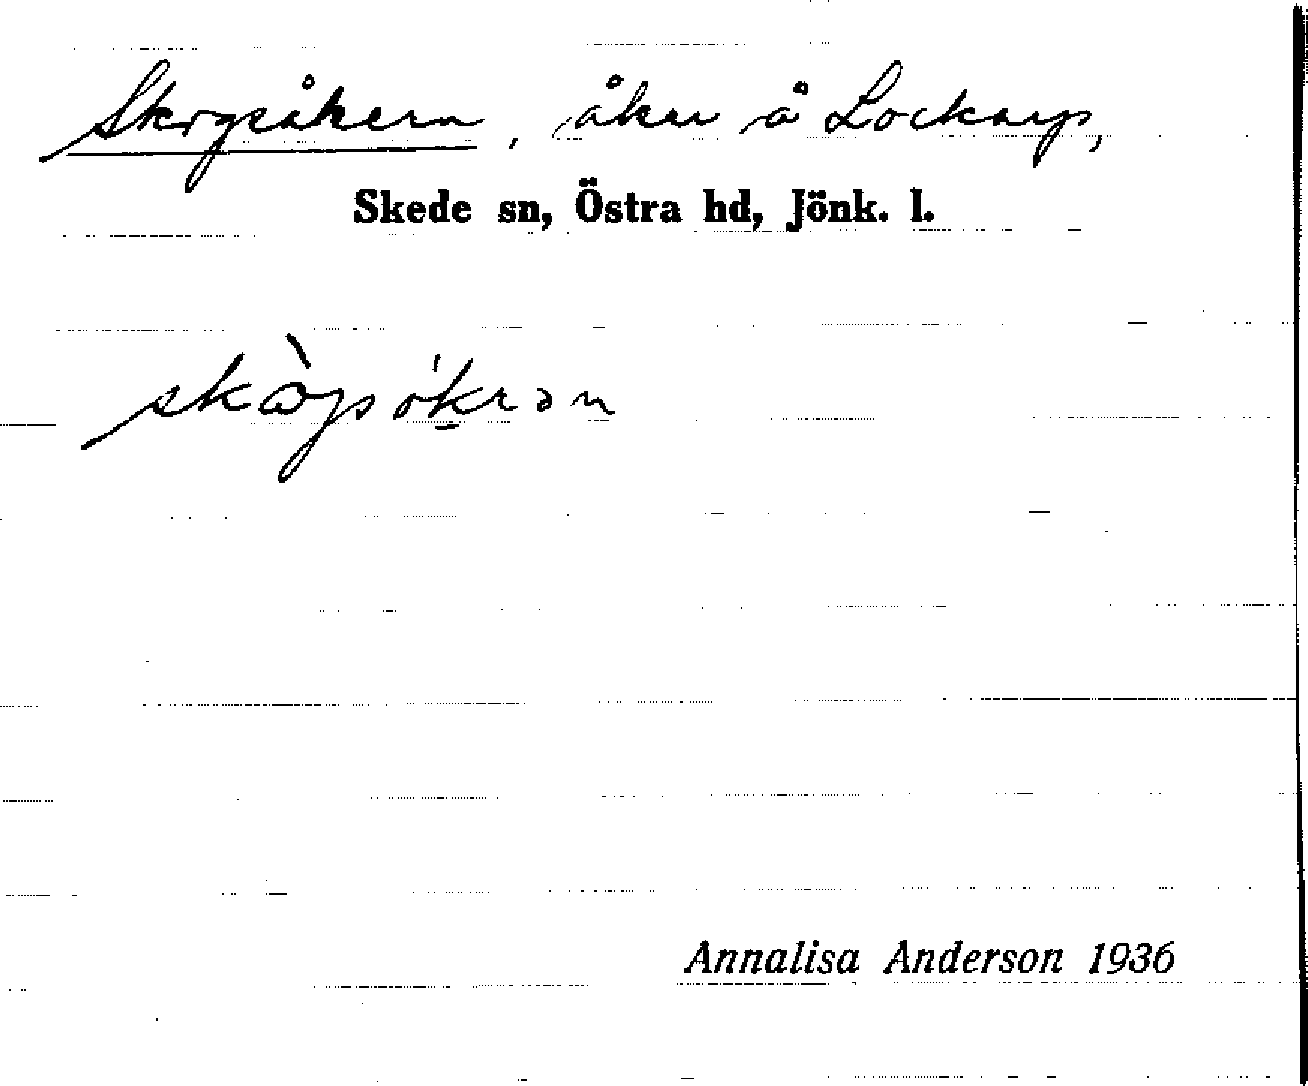 Skogsåkern, åker å Lockarp,
Skede sn, Östra hd, Jönk. l.
skògsókrən
Annalisa Anderson 1936